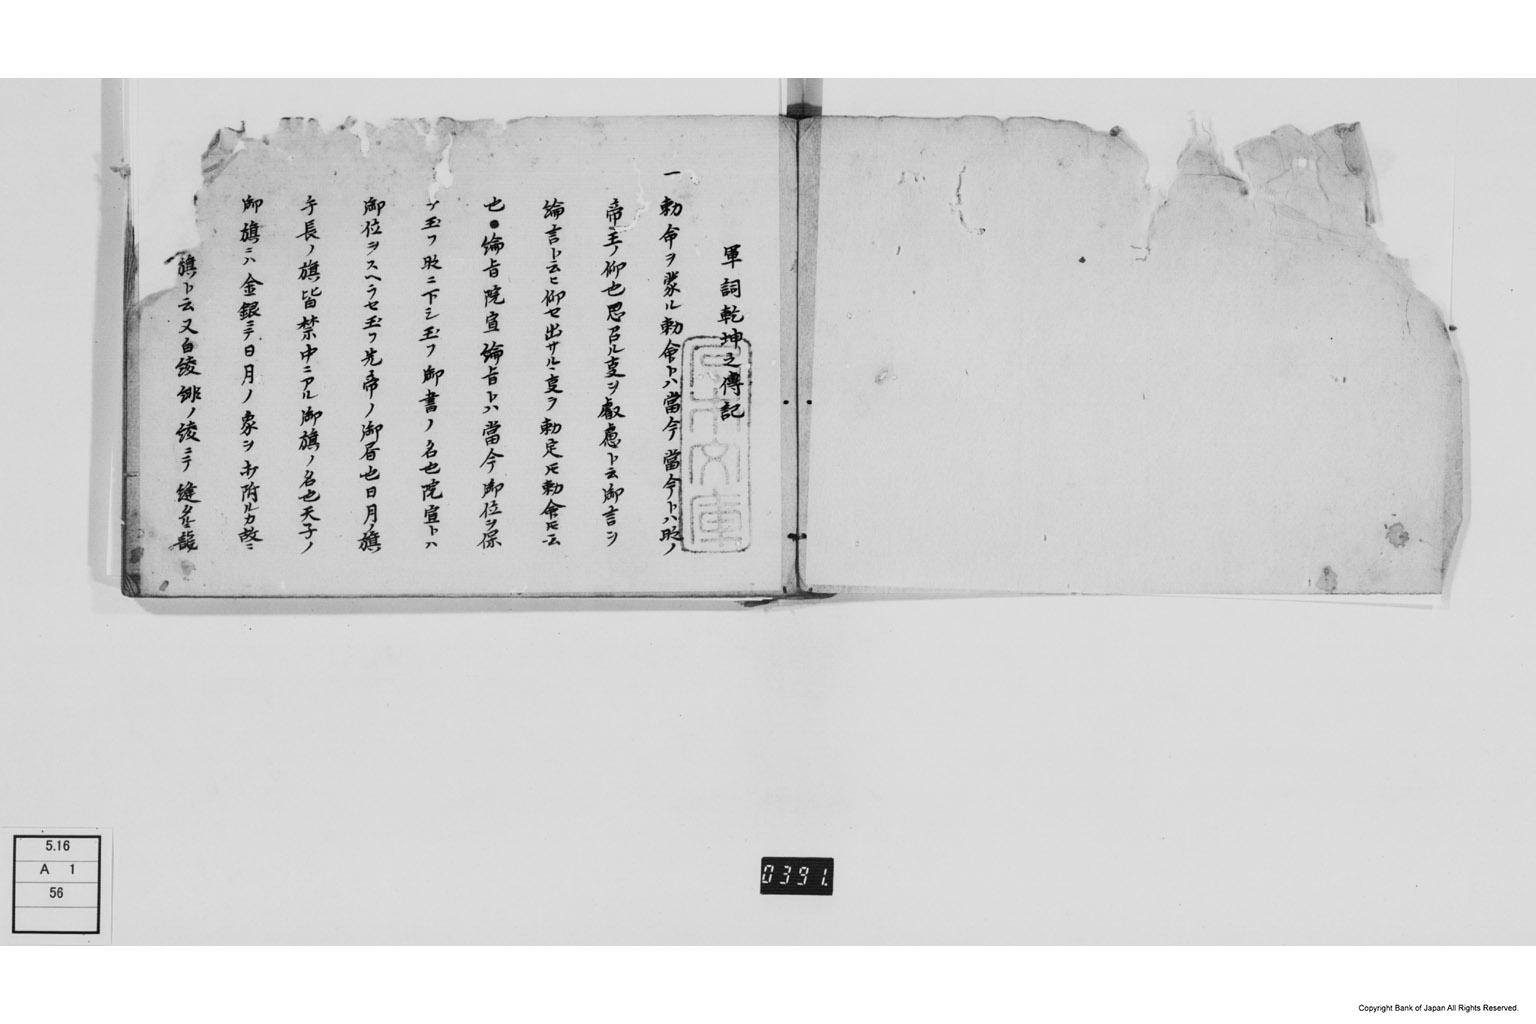 軍詞乾坤之傳記
一勅命ヲ蒙ル勅命トハ當今當今トハ时ノ
帝王ノ仰也思召ル亊ヲ叡慮ト云御言ヲ
綸言ト云ヒ仰セ出サルヽ亊ヲ勅定圧勅命圧云
也●綸旨院宣綸旨トハ當今御位ヲ保
チ玉フ时ニ下シ玉フ御書ノ名也院宣トハ
御位ヲスヘラセ玉フ先帝ノ御㕥也日月ノ旗
手長ノ旗皆禁中ニアル御旗ノ名也天子ノ
御旗ニハ金銀ニテ日月ノ象ヲ打附ルカ故ニ
旗ト云又白綾緋ノ綾ニテ縫タル龍
5.16
A 1
56
0391.
Copyright Bank of Japan All Rights Reserved.